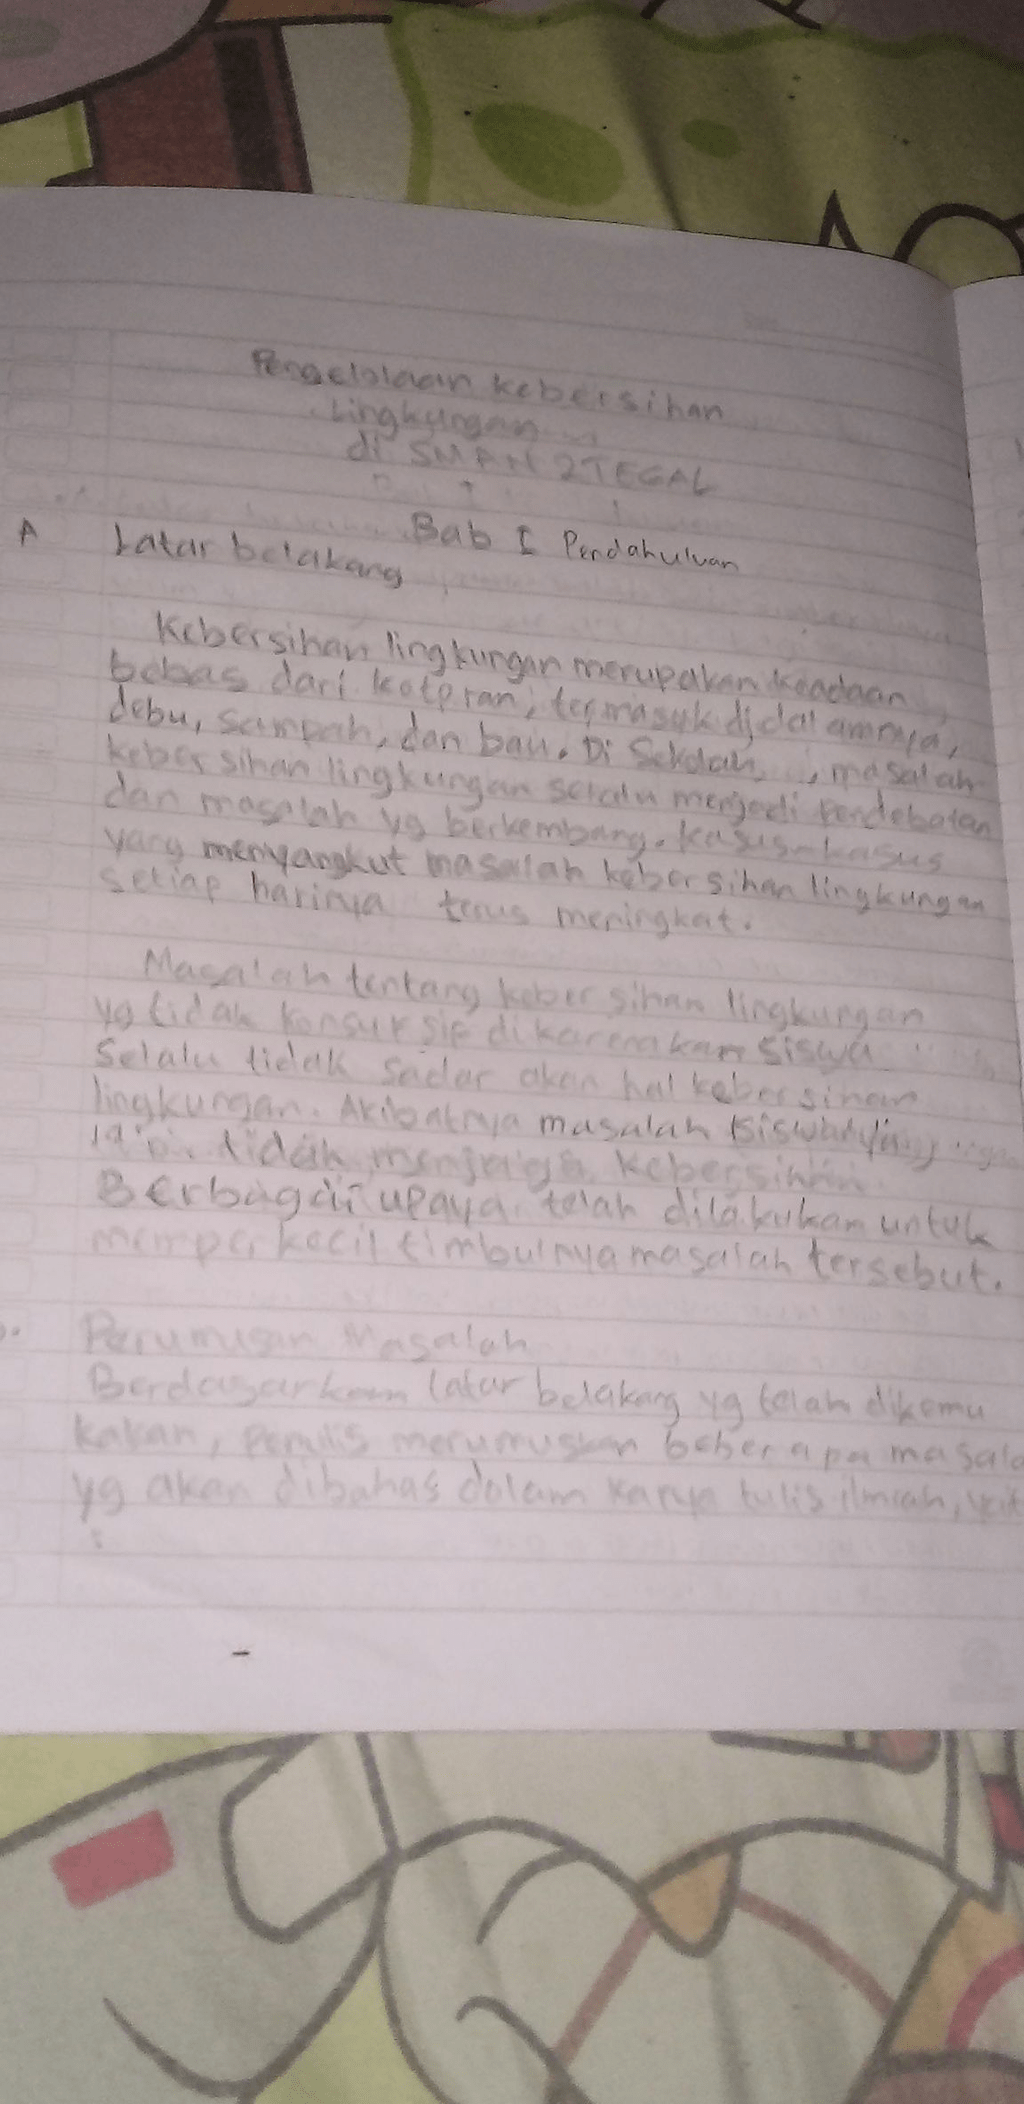 Pengelolaan kebersihan
Lingkungan
di SMAN 2 TEGAL
Bab I Pendahuluan
A Latar belakang
Kebersihan lingkungan merupakan keadaan
bebas dari kotoran, termasuk didalamnya,
debu, sampah, dan bau. Di Sekolah, masalah
kebersihan lingkungan selalu menjadi Perdebatan
dan masalah yg berkembang. kasus-kasus
yang menyangkut masalah kebersihan lingkungan
setiap harinya terus meningkat.
Masalah tentang kebersihan lingkungan
yg tidak dikarenakan siswa
Selalu tidak sadar akan hal kebersihan
lingkungan. Akibatnya masalah siswa yang
tidak menjaga kebersihan.
Berbagai upaya telah dilakukan untuk
memperkecil timbulnya masalah tersebut.
Perumusan Masalah
Berdasarkan latar belakang yg telah dikemu
kakan, Penulis merumuskan beberapa masala
yg akan dibahas dalam karya tulis ilmiah, yait
: